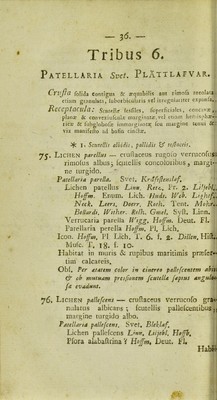 — 36. —
Tribus 6.
PATELLARIA Svet. PLÄTTLAFVAR.
Crusta solida contigua & æquabilis aut rimosa areolata
etiam granulata, suborbicularis vel irregulariter expansa.
Receptacula: Scutellæ sessiles, superficiales, concavæ,
planæ & convexiusculæ marginatæ, vel etiam hemisphæ-
ricæ & subglobosæ immarginatæ seu margine tenui &
vix manifesto ad basin cinctæ.
* 1. Scutellis albidis, pallidis & testaceis.
75. LICHEN parellus — crustaceus rugoso verrucosus
rimosus albus, scutellis concoloribus, margi-
ne turgido.
Patellaria parella. Svet.
Lichen parellus Linn. Retz. Fr. 2.
Hoffm. Enum. Lich. Hods. Web. Lightf.
Neck. Leers, Doerr. Roth. Tent. Mohr.
Bellardi, Wither. Relh. Gmel. Syst. Linn.
Verrucaria parella Wigg. Hoffm. Deut. Fl.
Patellaria parella Hoffm. Pl. Lich.
Icon. Hoffm. Pl. Lich. T. 6. f. 2. Dillen. Hist.
Musc. T. 18. f. 10.
Habitat in muris & rupibus maritimis præser-
tim calcareis.
Obs. Per ætatem color in cinereo pallescentem abit
& ob mutuam pressionem scutella sæpius angulo-
sa evadunt.
76. LICHEN pallescens — crustaceus verrucoso gra-
nulatus albicans, scutellis pallescentibus
margine turgido albo.
Patellaria pallescens. Svet. Bleklaf.
Lichen pallescens Linn. Hoffm.
Psora alabastrina Hoffm. Deut. Fl.